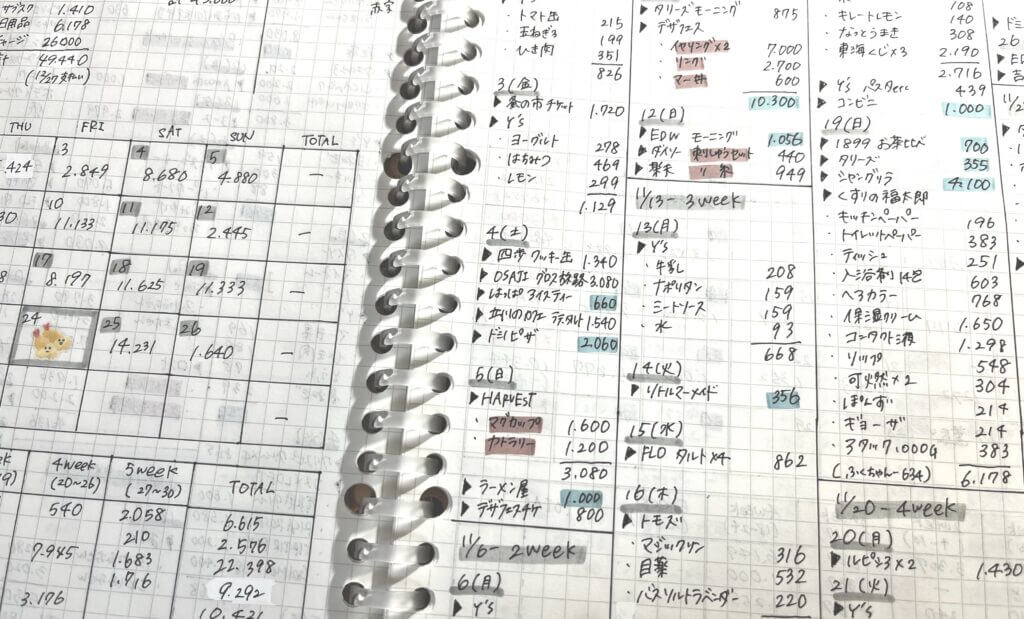 サブスク 1.410
日用品 6.178
チャージ 26000
49.440
(12/27支払い)
赤字
THU FRI SAT SUN TOTAL
.424 3 2.849 4 8.680 5 4.880 —
10 11.133 11 11.175 12 2.445 —
17 8.197 18 11.625 19 11.333 —
24 25 14.231 26 1.640 —
—
4week (20~26) 5week (27~30) TOTAL
540 2.058 6.615
210 2.576
7.945 1.683 22.398
1.716 9.292
3.176 10.421
・トマト缶 215
・玉ねぎ3 199
・ひき肉 351
826
3(金)
▶蚤の市チケット 1.720
▶Y's
・ヨーグルト 278
・はちみつ 469
・レモン 299
1.129
4(土)
▶四歩 クッキー缶 1.340
▶OSAJI 3.080
▶はっぱ アイスティー 660
1.540
▶ドミノピザ 2.060
5(日)
▶HARVEST
・マグカップ 1.600
・カトラリー 1.200
3.080
▶ラーメン屋 1.000
▶デザフェスチケ 800
11/6- 2week
6(月)
▶Y's
▶タリーズモーニング 875
▶デザフェス
・イヤリング×2 7.000
・リング 2.700
・マー姉 600
10.300
12(日)
▶EDW モーニング 1.056
▶ダイソー 刺しゅうセット 440
▶楽天 〃 糸 949
11/13- 3week
13(月)
▶Y's
・牛乳 208
・ナポリタン 159
・ミートソース 159
・水 93
668
14(火)
▶リトルマーメイド 356
15(水)
▶FLO タルト×4 862
16(木)
▶トモズ
・マジックリン 316
・目薬 532
・バスソルトラベンダー 220
108
・キレートレモン 140
・なっとうまき 308
・東海くじ×3 2.190
2.716
▶Y's パスタetc 439
▶コンビニ 1.000
19(日)
▶1899 お茶とび 700
▶タリーズ 355
▶シャングリラ 4.100
▶くすりの福太郎
・キッチンペーパー 196
・トイレットペーパー 383
・ティッシュ 251
・入浴剤14包 603
・ヘアカラー 768
・保湿クリーム 1.650
・コンタクト液 1.298
・リップ 548
・可燃×2 304
・ぽんず 214
・ギョーザ 214
・アタック1000G 383
(ふくちゃん-634) 6.178
11/20-4week
20(月)
▶ルピシア×2 1.430
21(火)
▶Y's
▶ドミ
26
▶ED
▶吉